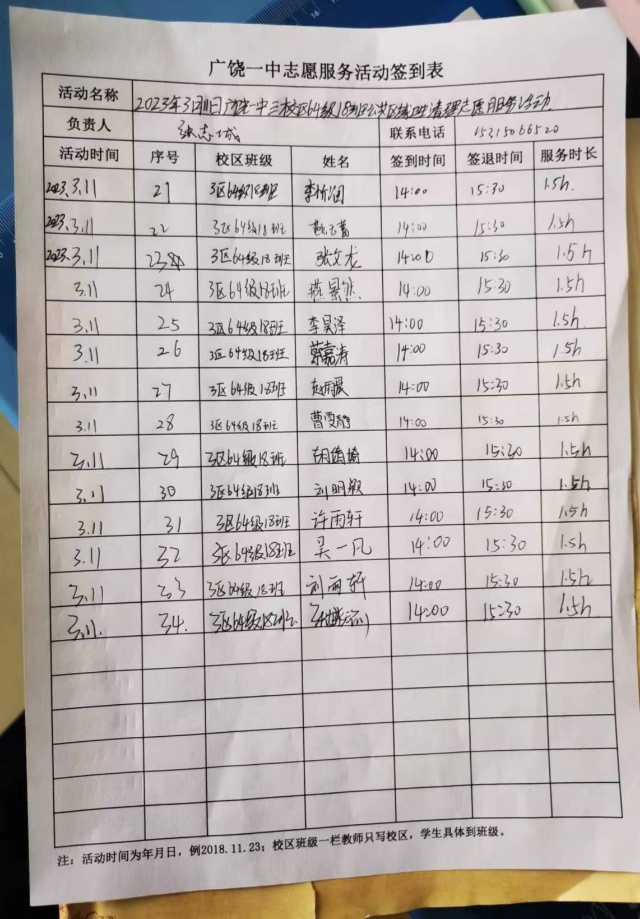 广饶一中志愿服务活动签到表
活动名称 2023年3月11日广饶一中三校区64级18班公共区域清理志愿服务活动
负责人 张志城 联系电话 15215066520
活动时间 序号 校区班级 姓名 签到时间 签退时间 服务时长
2023.3.11 21 3区64级18班 14:00 15:30 1.5h.
2023.3.11 22 3区64级18班 14:00 15:30 1.5h
2023.3.11 23 3区64级18班 张文龙 14:00 15:30 1.5h
3.11 24 3区64级18班 燕景然 14:00 15:30 1.5h
3.11 25 3区64级18班 李昊泽 14:00 15:30 1.5h
3.11 26 3区64级18班 荣嘉涛 14:00 15:30 1.5h
3.11 27 3区64级18班 14:00 15:30 1.5h
3.11 28 3区64级18班 曹雯静 14:00 15:30 1.5h
3.11 29 3区64级18班 14:00 15:30 1.5h
3.11 30 3区64级18班 刘明毅 14:00 15:30 1.5h
3.11 31 3区64级18班 许雨轩 14:00 15:30 1.5h
3.11 32 3区64级18班 吴一凡 14:00 15:30 1.5h
3.11 33 3区64级18班 刘雨轩 14:00 15:30 1.5h
3.11. 34. 3区64级18班 14:00 15:30 1.5h
注：活动时间为年月日，例2018.11.23；校区班级一栏教师只写校区，学生具体到班级。